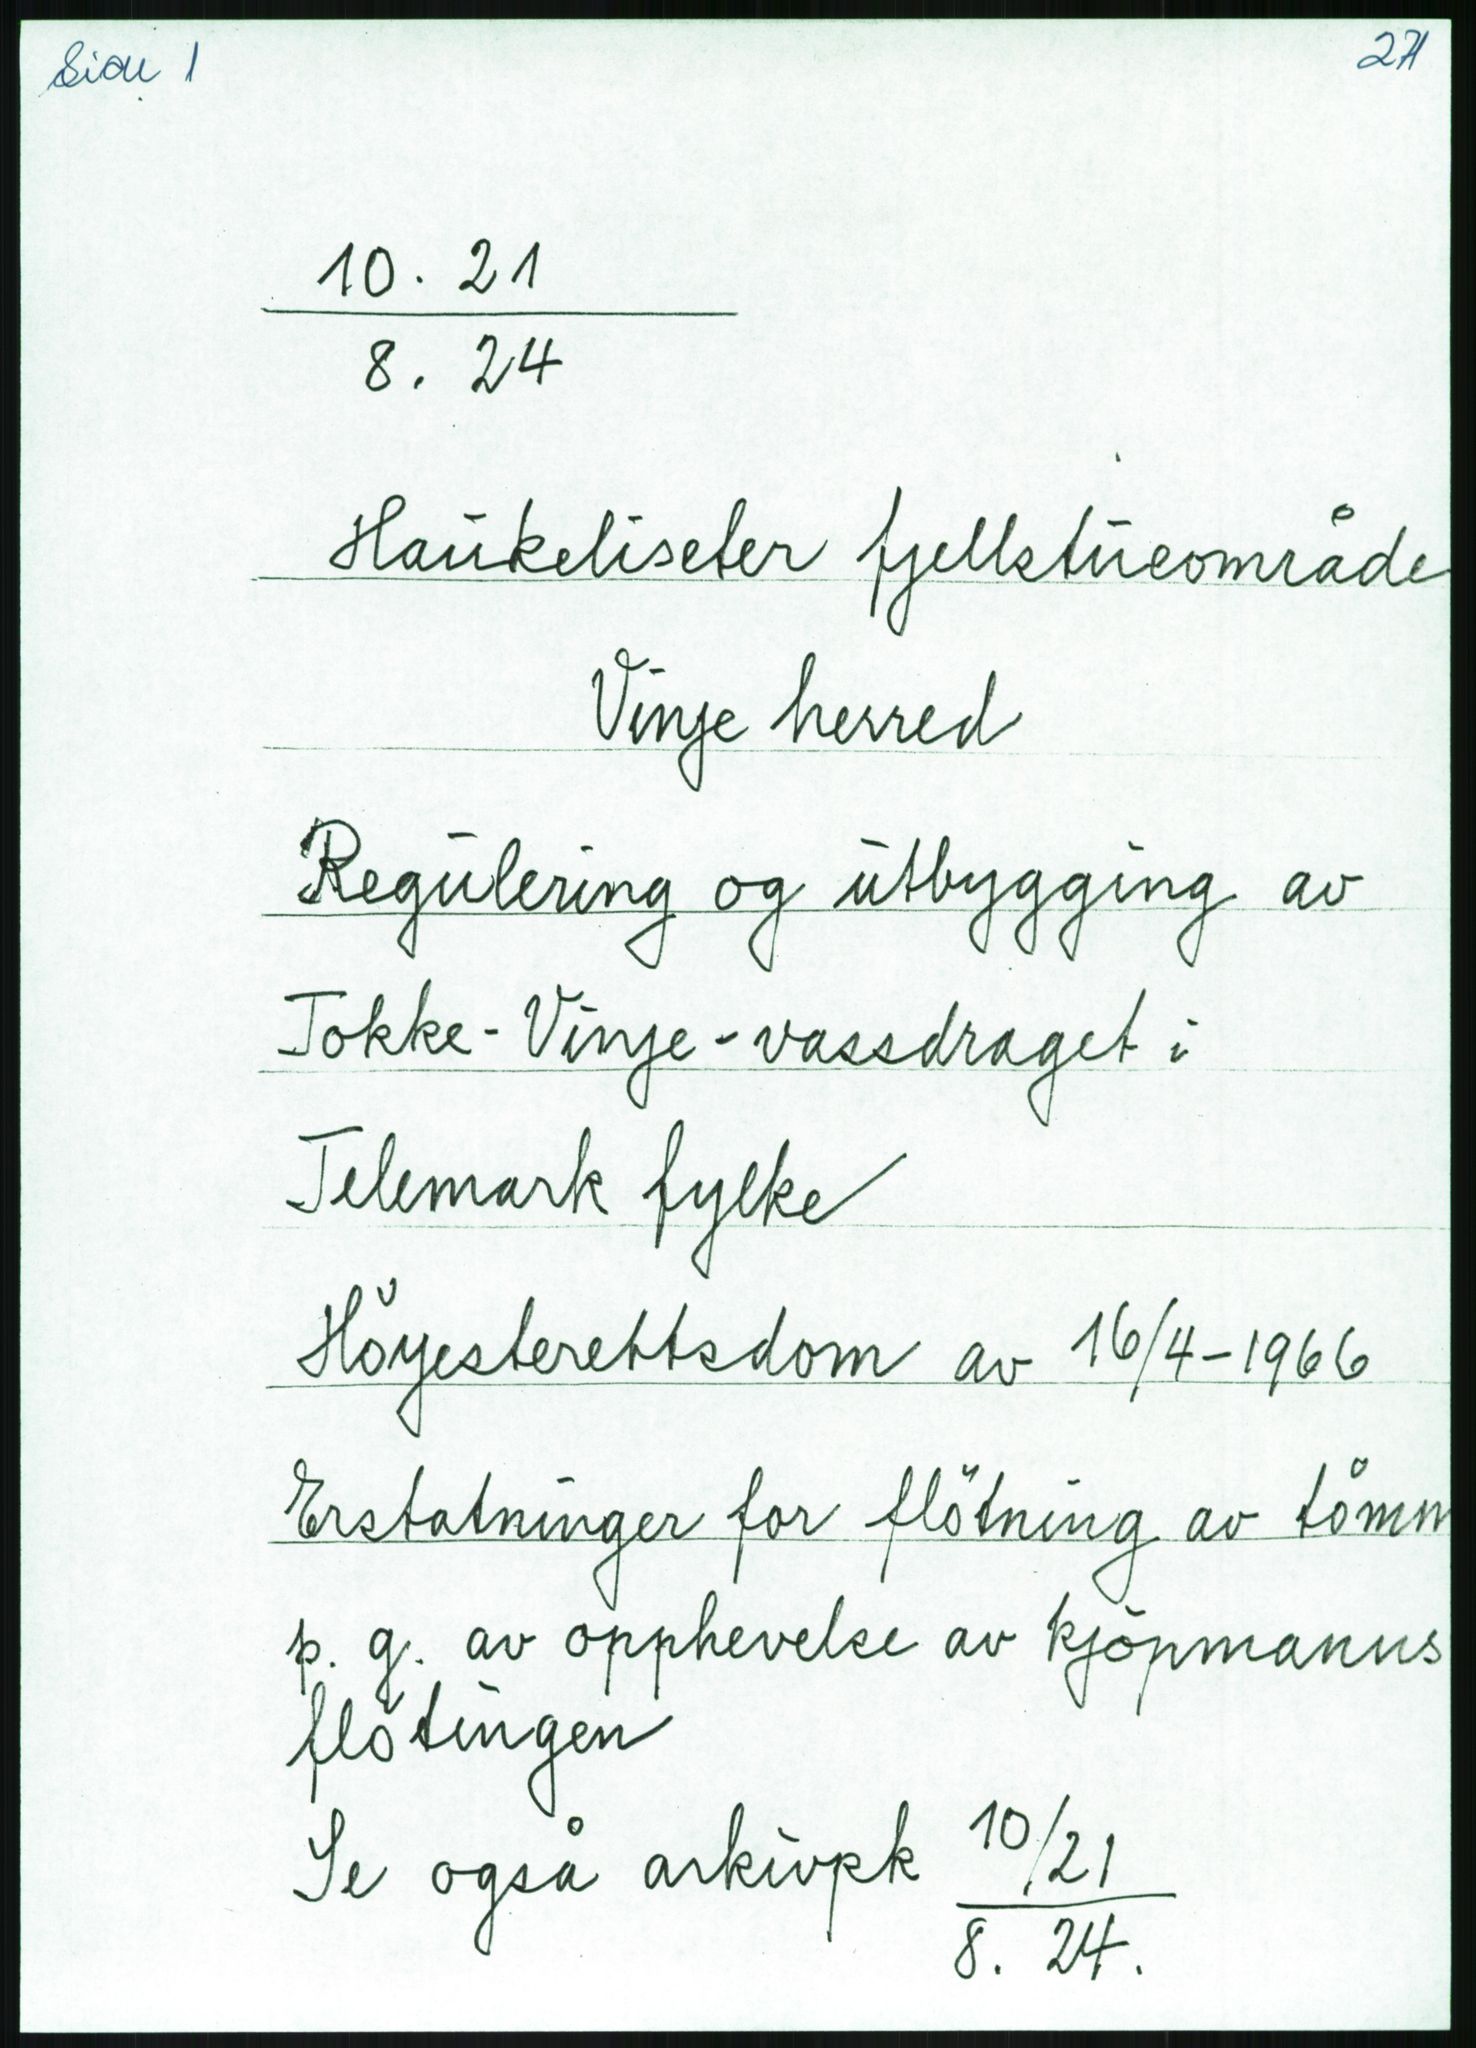 Side 1
271
10. 21
8. 24
Haukeliseter fjellstueområde
Vinje herred
Regulering og utbygging av
Tokke-Vinje-vassdraget i
Telemark fylke
Höyesterettsdom av 16/4-1966
Erstatninger for flötning av tömm
p. g. av opphevelse av kjöpmanns
flötingen
Se også arkivpk 10/21
8. 24.